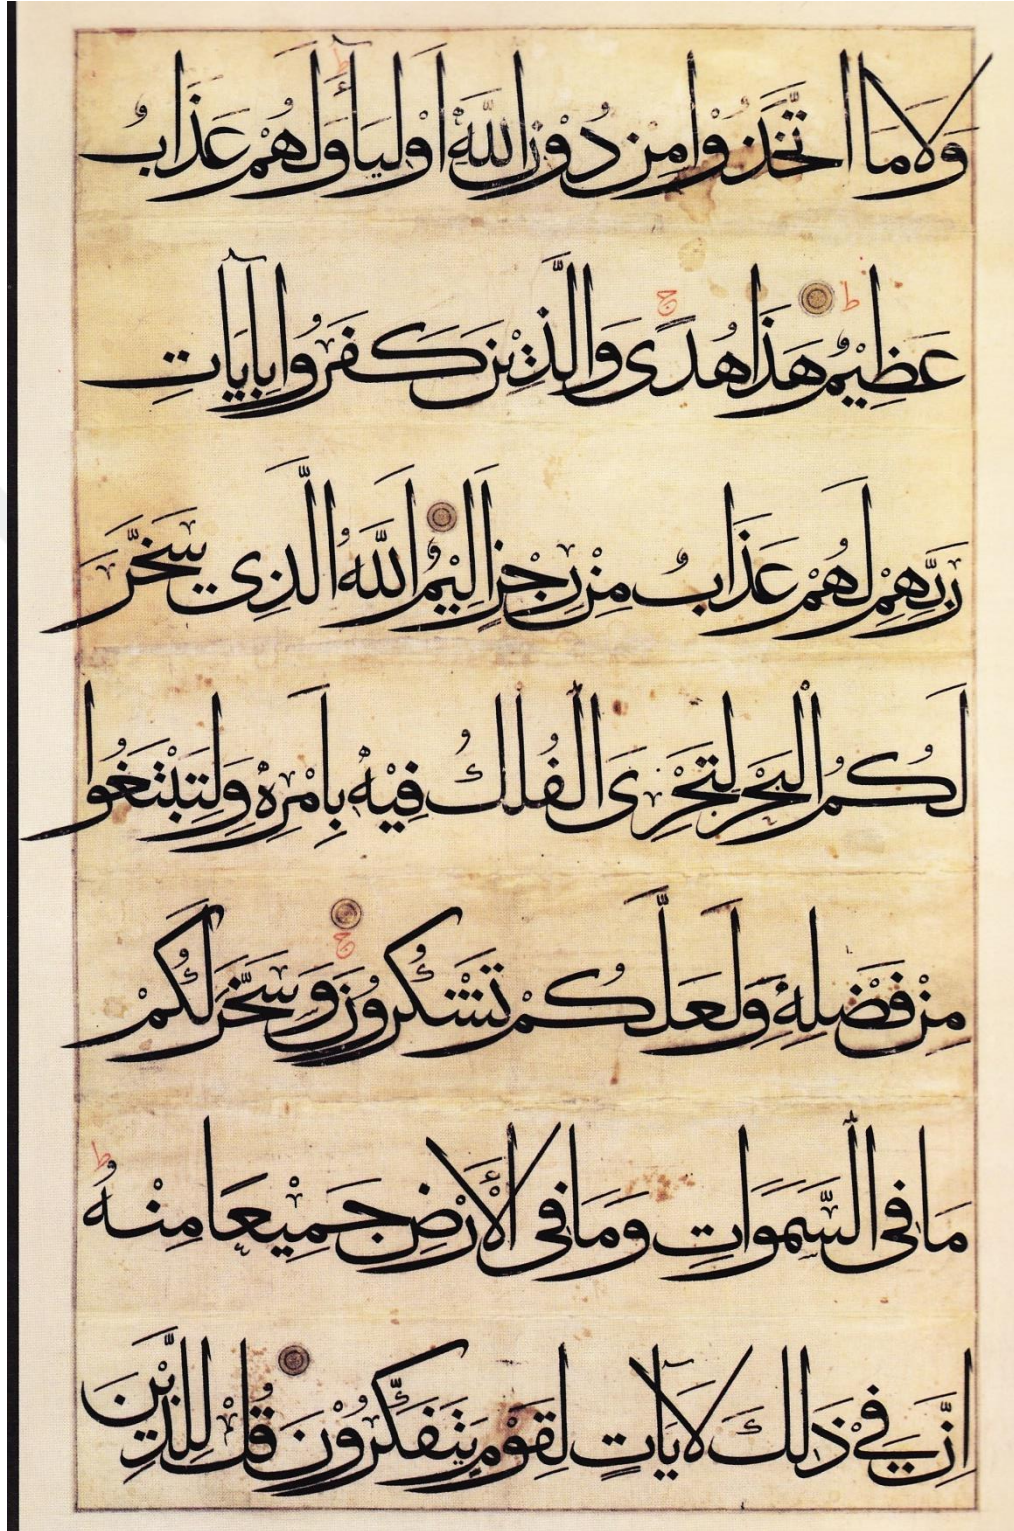 وَلَا مَا اتَّخَذُوْا مِنْ دُوْنِ اللّٰهِ اَوْلِيَآءَ وَلَهُمْ عَذَابٌ
عَظِيْمٌ ط هَذَا هُدًى ج وَالَّذِيْنَ كَفَرُوا بِاٰيَاتِ
رَبِّهِمْ لَهُمْ عَذَابٌ مِنْ رِجْزٍ اَلِيْمٌ اَللّٰهُ الَّذِى سَخَّرَ
لَكُمُ الْبَحْرَ لِتَجْرِىَ الْفُلْكُ فِيْهِ بِاَمْرِهٖ وَلِتَبْتَغُوا
مِنْ فَضْلِهٖ وَلَعَلَّكُمْ تَشْكُرُوْنَ ج وَسَخَّرَ لَكُمْ
مَا فِى السَّمَوَاتِ وَمَا فِى الْأَرْضِ جَمِيْعًا مِنْهُ ط
اِنَّ فِيْ ذَلِكَ لَآيَاتٍ لِقَوْمٍ يَتَفَكَّرُوْنَ قُلْ لِلَّذِيْنَ